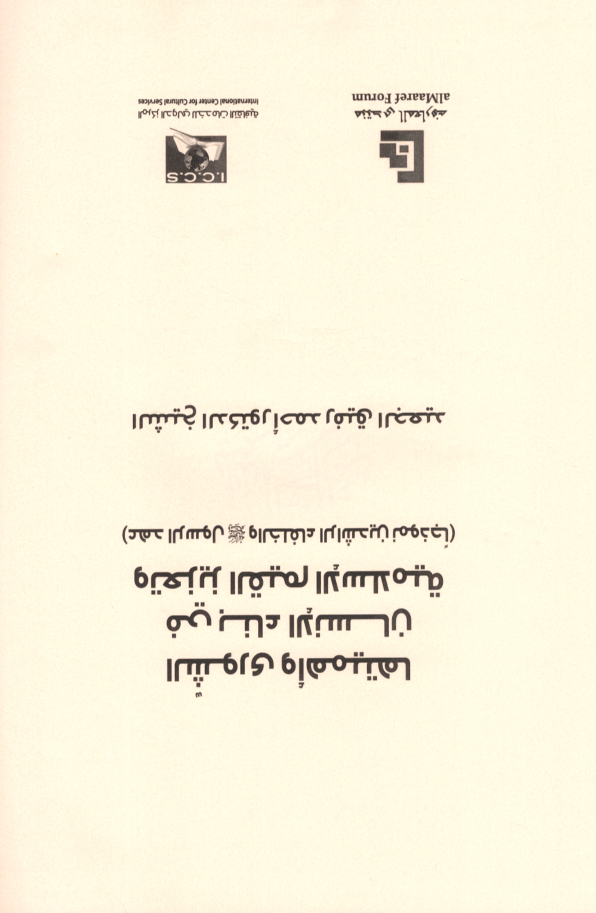 الشّورى وأهميتها
في بناء الإنسان
وتعزيز القيم الإسلامية
(عهد الرسول ﷺ والخلفاء الراشدين نموذجاً)
الشيخ الدكتور أحمد رفيق الجعيد
منتدى المعارف
alMaaref Forum
I.C.C.S
المركز الدولي للخدمات الثقافية
International Center for Cultural Services